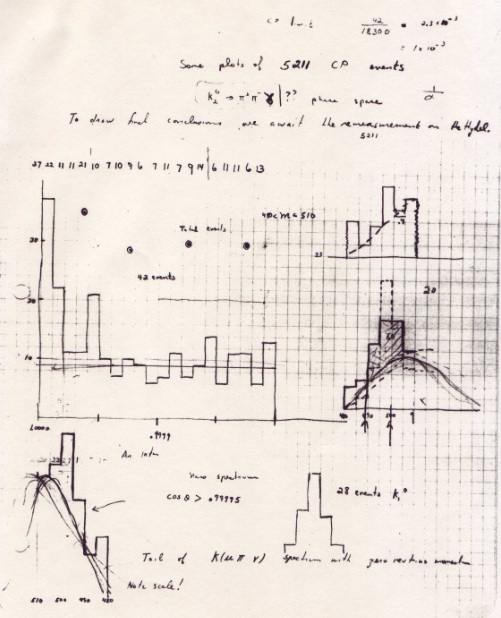 CP limit 42/18300 = 2.3 × 10⁻³
= 1 × 10⁻³
Some plots of 5211 CP events
K₂⁰ → π⁺π⁻ γ ?? phase space 1/α
To draw final conclusions we await the remeasurement on the Hydel.
5211
27 22 11 11 21 10 7 10 9 6 7 11 7 9 14 6 11 11 6 13
490 < m < 510
Total events
42 events
30
20
10
20
1.0000 .9999
490 500
Mass spectrum
cos θ > .99995
28 events K₁⁰
Tail of K(μ π ν) spectrum with zero neutrino momentum
Note scale!
510 500 490 480